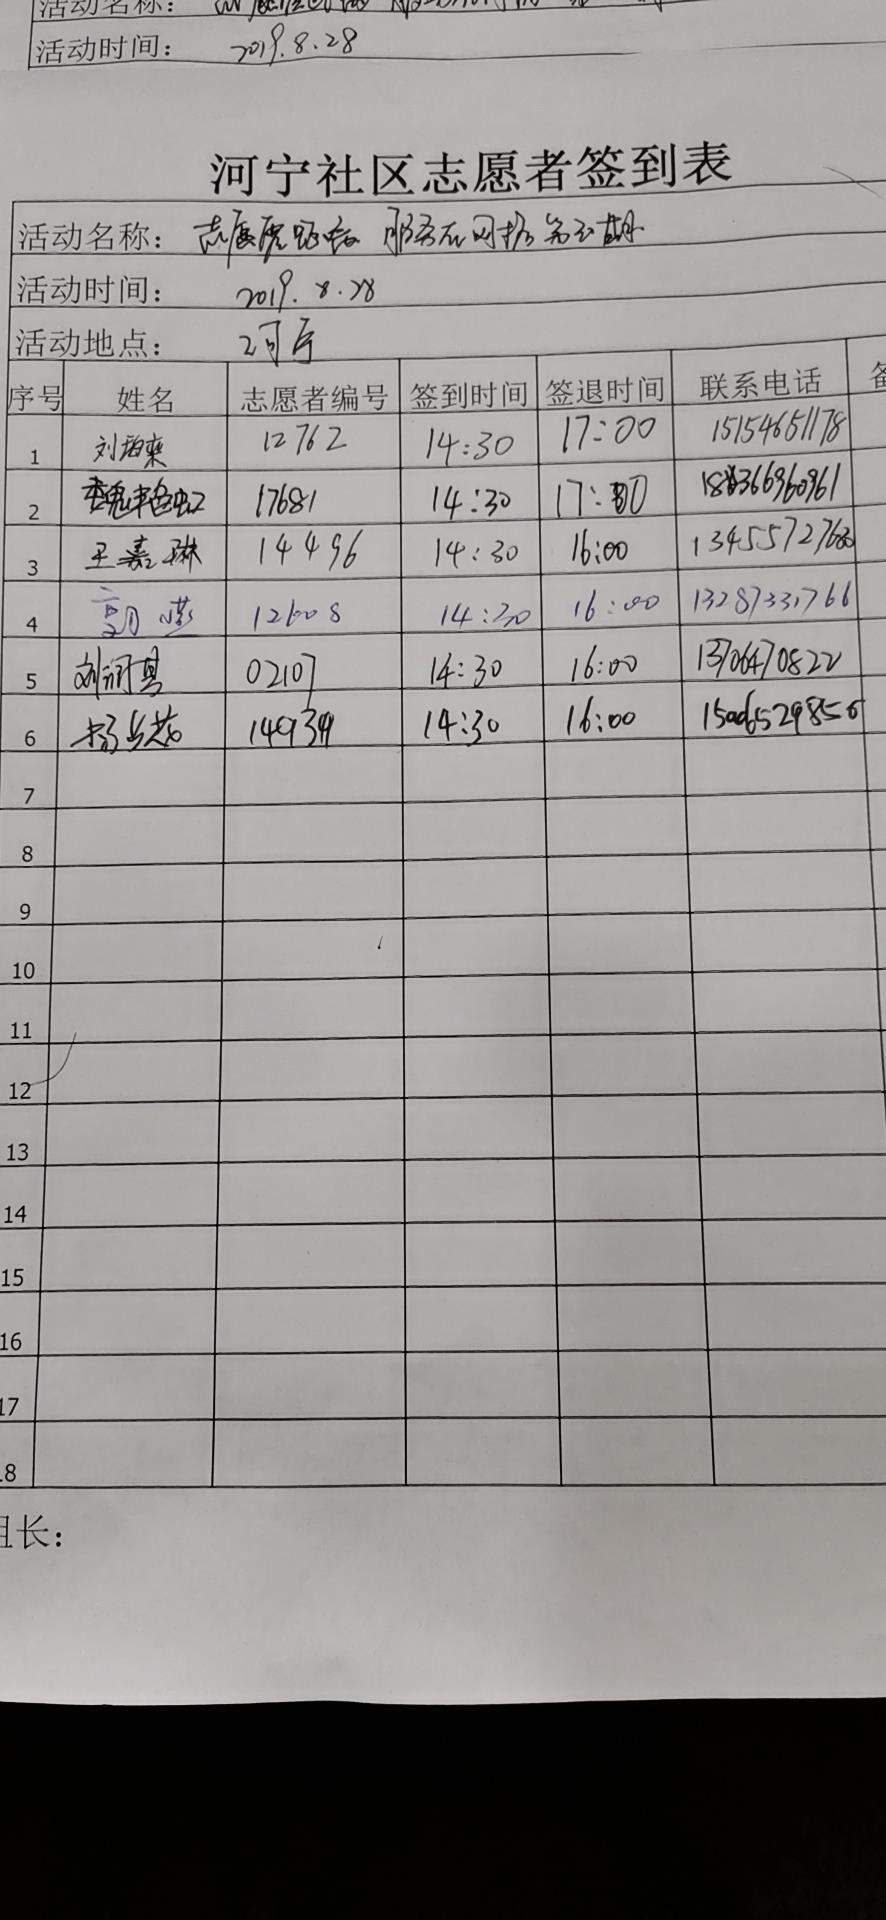 活动名称：
活动时间： 2019.8.28
河宁社区志愿者签到表
活动名称： 志愿 服务在网格第 期
活动时间： 2019.8.28
活动地点：
序号 姓名 志愿者编号 签到时间 签退时间 联系电话
1 刘 12762 14:30 17:00 15154651178
2 17681 14:30 17:00
3 王嘉琳 14496 14:30 16:00
4 12608 14:30 16:00 13287331766
5 刘 02107 14:30 16:00 13706470822
6 杨 14:30 16:00
7
8
9
10
11
12
13
14
15
16
17
18
组长：